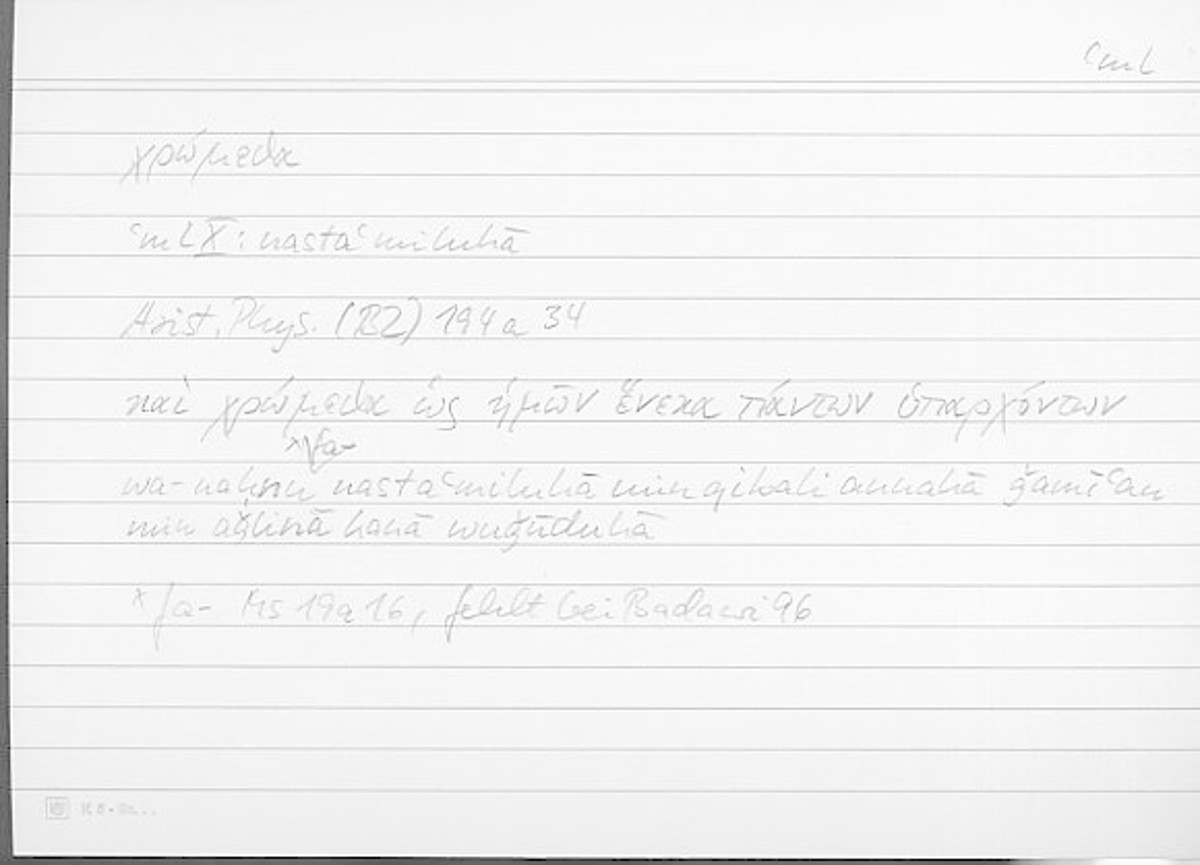 ʿml
χρώμεθα
ʿml X : nastaʿmiluhā
Arist. Phys. (B2) 194 a 34
καὶ χρώμεθα ὡς ἡμῶν ἕνεκα πάντων ὑπαρχόντων
*fa-
wa-naḥnu nastaʿmiluhā min qibali annahā ǧamīʿan
min aǧlinā kāna wuǧūduhā
* fa- Ms 19a16, fehlt bei Badawi 96